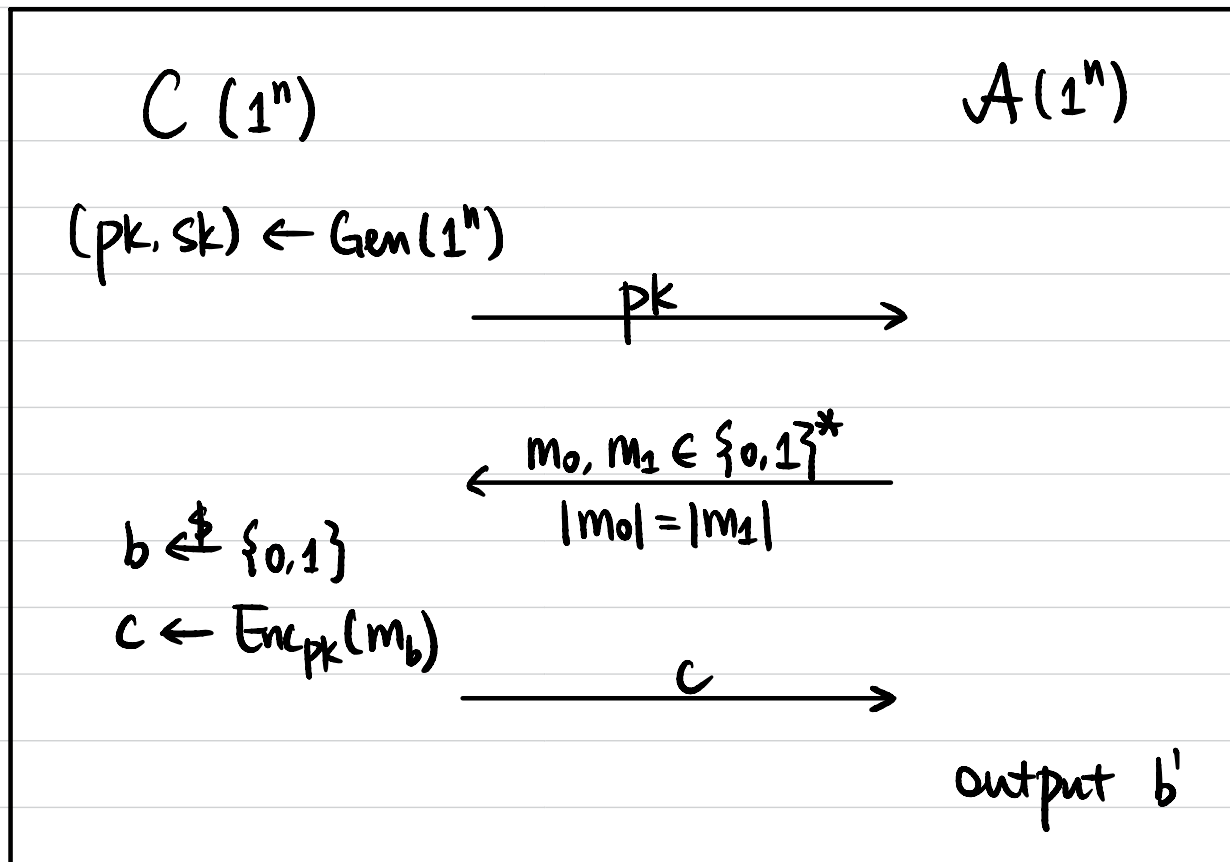 C (1ⁿ) A (1ⁿ)
(pk, sk) ← Gen(1ⁿ)
pk
m₀, m₁ ∈ {0,1}*
|m₀| = |m₁|
b ←$ {0,1}
c ← Enc_pk(m_b)
c
output b'